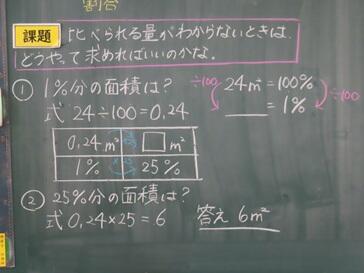 割合
課題 比べられる量がわからないときは、
どうやって求めればいいのかな。
① 1%分の面積は?
式 24÷100=0.24
÷100 24m²=100% ÷100
=1%
0.24m² □m²
1% 25%
② 25%分の面積は?
式 0.24×25=6
答え 6m²